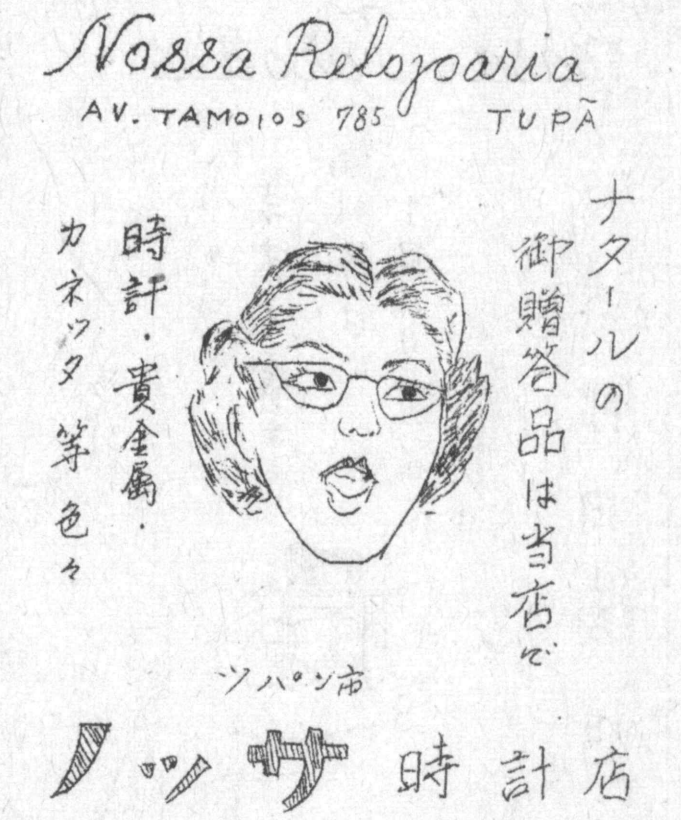 Nossa Relojoaria
AV. TAMOIOS 785 TUPÃ
ナタールの
御贈答品は当店で
時計・貴金属・
カネッタ等色々
ツパン市
ノッサ時計店